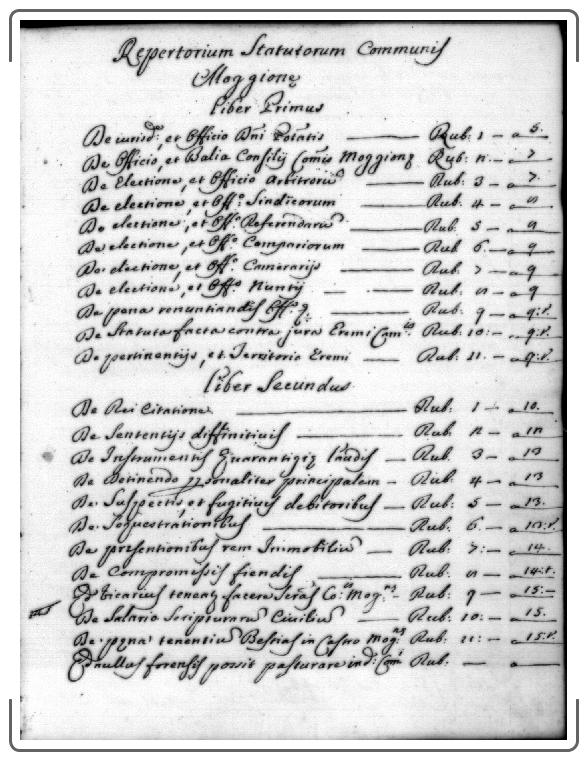 Repertorium Statutorum Communis
Moggionę
Liber Primus
De iurisd: et Officio Dni Potatis Rub. 1 - a 5.
De Officio, et Balia Consilij Comis Moggionę Rub. 2. - a 7
De Electione, et Officio Arbitroru Rub. 3 - a 7.
De electione, et Off: Sindicorum Rub. 4 - a 8
De electione, et Off: Referendaru Rub. 5 - a 8
De electione, et Off: Compariorum Rub. 6. - a 9
De electione, et Off: Camerarijs Rub. 7 - a 9
De electione, et Offo Nuntij Rub. 8 - a 9
De pena renuntiandis Rub. 9 - a 9:t.
De Statuta facta contra jura Eremi Rub. 10: - a 9:t.
De pertinentijs, et Territorio Eremi Rub. 11. - a 9:t.
Liber Secundus
De Rei Citatione Rub: 1 - a 10.
De Sententijs diffinitivis Rub: 2 - a 12
De Instrumentis Guarantigię laudis Rub: 3 - a 13
De Detinendo personaliter principalem - Rub: 4 - a 13
De Suspectis, et fugitivis debitoribus - Rub: 5 - a 13.
De Sequestrationibus Rub: 6. - a 13:t.
De presentionibus rem Immobiliu Rub: 7: - a 14.
De Compromissis fiendis Rub: 8 - a 14:t.
Vicarius teneat facere Rub: 9 - a 15: -
De Salario Scripturaru Civiliu Rub: 10: - a 15.
De pęna tenentiu Bestias in Castro Mog:ns Rub: 11: - a 15:t.
nullus forensis possit pasturare in d: Com Rub: - a